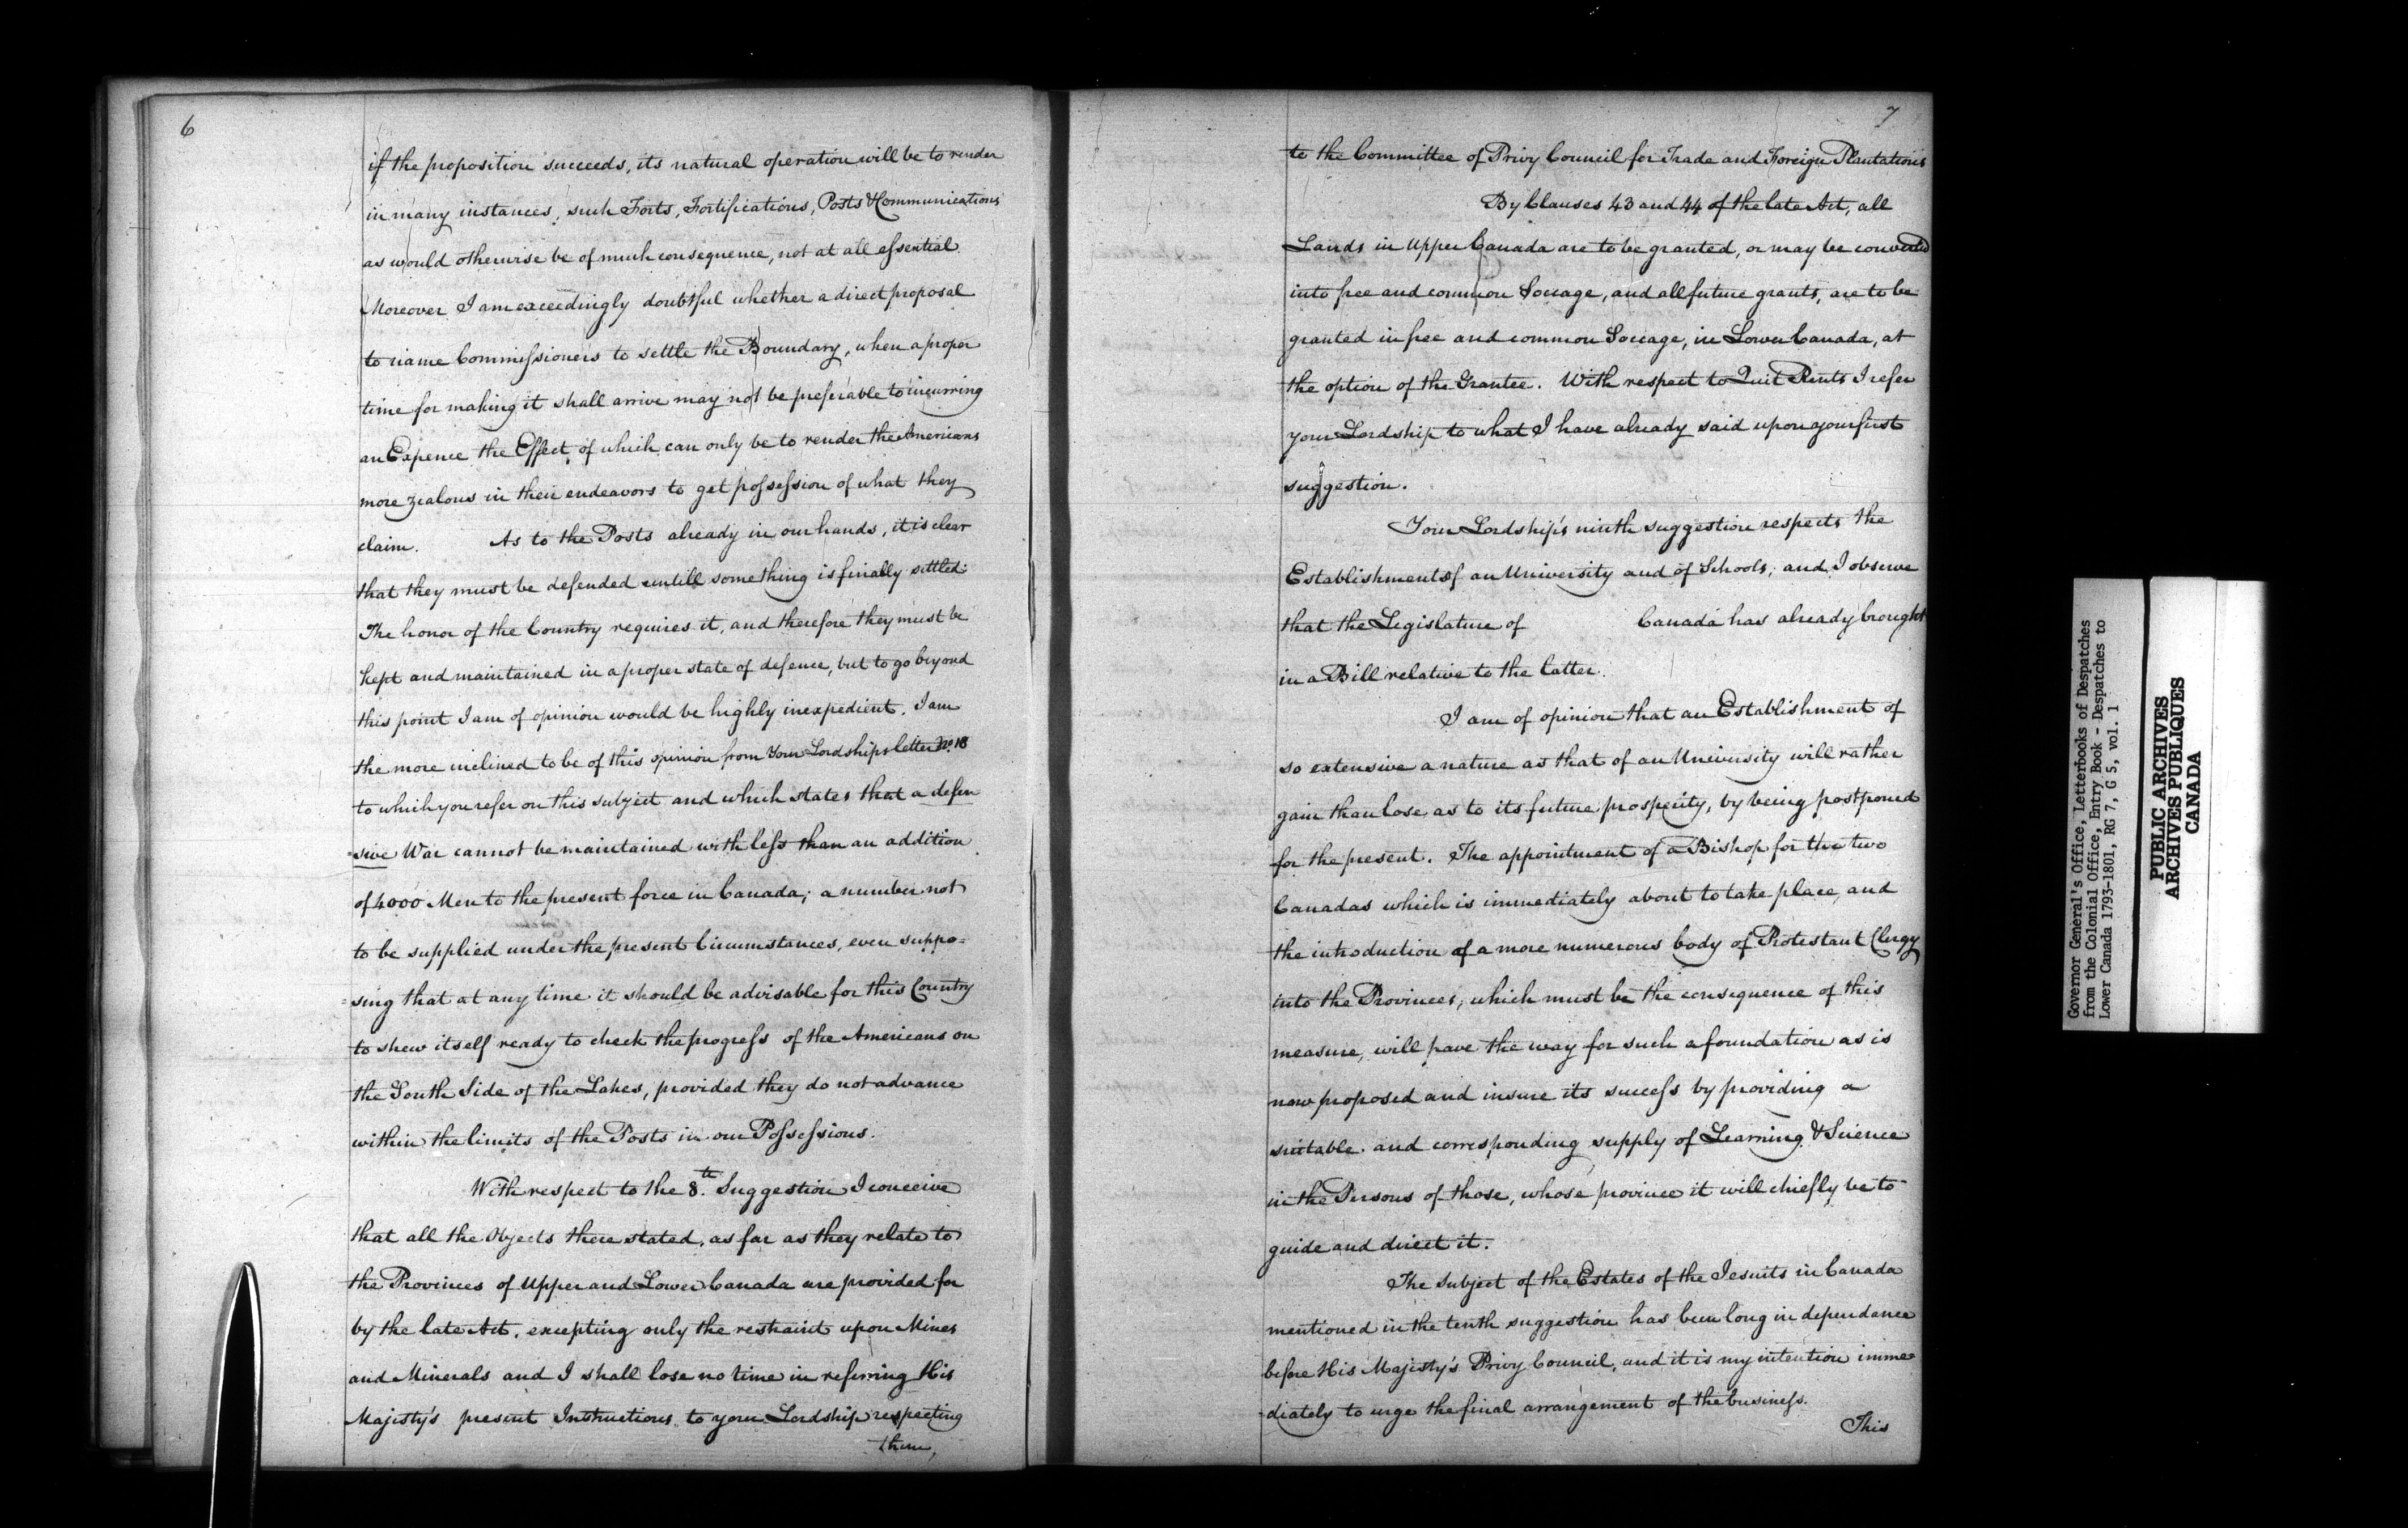 6
if the proposition succeeds, its natural operation will be to render
in many instances, such Forts, Fortifications, Posts & Communications
as would otherwise be of much consequence, not at all essential.
Moreover I am exceedingly doubtful whether a direct proposal
to name Commissioners to settle the Boundary, when a proper
time for making it shall arrive may not be preferable to incurring
an Expence the Effect of which can only be to render the Americans
more zealous in their endeavors to get possession of what they
claim. As to the Posts already in our hands, it is clear
that they must be defended untill something is finally settled:
The honor of the Country requires it, and therefore they must be
kept and maintained in a proper state of defence, but to go beyond
this point I am of opinion would be highly inexpedient. I am
the more inclined to be of this opinion from Your Lordships letter No. 18
to which you refer on this subject and which states that a defen
=sive War cannot be maintained with less than an addition
of 4000 Men to the present force in Canada; a number not
to be supplied under the present Circumstances, even suppo=
=sing that at any time it should be advisable for this Country
to shew itself ready to check the progress of the Americans on
the South Side of the Lakes, provided they do not advance
within the limits of the Posts in our Possessions.
With respect to the 8.th Suggestion I conceive
that all the Objects there stated, as far as they relate to
the Provinces of Upper and Lower Canada are provided for
by the late Act, excepting only the restraint upon Mines
and Minerals and I shall lose no time in referring His
Majesty's present Instructions to your Lordship respecting
them,
7
to the Committee of Privy Council for Trade and Foreign Plantations
By Clauses 43 and 44 of the late Act, all
Lands in Upper Canada are to be granted, or may be converted
into free and common Soccage, and all future grants, are to be
granted in free and common Soccage, in Lower Canada, at
the option of the Grantee. With respect to Quit Rents I refer
your Lordship to what I have already said upon your first
suggestion.
Your Lordship's ninth suggestion respects the
Establishment of an University and of Schools; and I observe
that the Legislature of Canada has already brought
in a Bill relative to the latter.
I am of opinion that an Establishment of
so extensive a nature as that of an University will rather
gain than lose, as to its future prosperity, by being postponed
for the present. The appointment of a Bishop for the two
Canadas which is immediately about to take place, and
the introduction of a more numerous body of Protestant Clergy
into the Provinces, which must be the consequence of this
measure, will pave the way for such a foundation as is
now proposed and insure its success by providing a
suitable and corresponding supply of Learning & Science
in the Persons of those, whose province it will chiefly be to
guide and direct it.
The Subject of the Estates of the Jesuits in Canada
mentioned in the tenth suggestion has been long in dependance
before His Majesty's Privy Council, and it is my intention imme=
=diately to urge the final arrangement of the business.
This
Governor General's Office, Letterbooks of Despatches
from the Colonial Office, Entry Book - Despatches to
Lower Canada 1793-1801, RG 7, G 5, vol. 1
PUBLIC ARCHIVES
ARCHIVES PUBLIQUES
CANADA